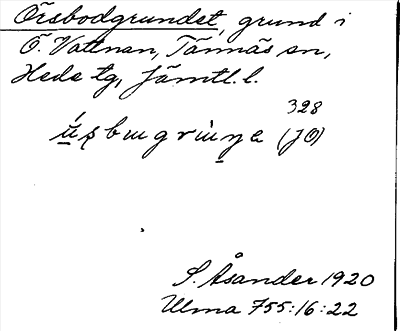 Örsbodgrundet, grund i
Ö. Vattnan, Tännäs sn,
Hede tg, Jämtl. l.
328
(JÖ)
S. Åsander 1920
Ulma 755:16:22